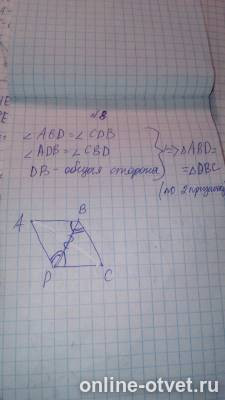 №8
∠ABD=∠CDB
∠ADB=∠CBD
DB - общая сторона
=>△ABD=
=△DBC
(по 2 признаку
A
B
D
C
online-otvet.ru